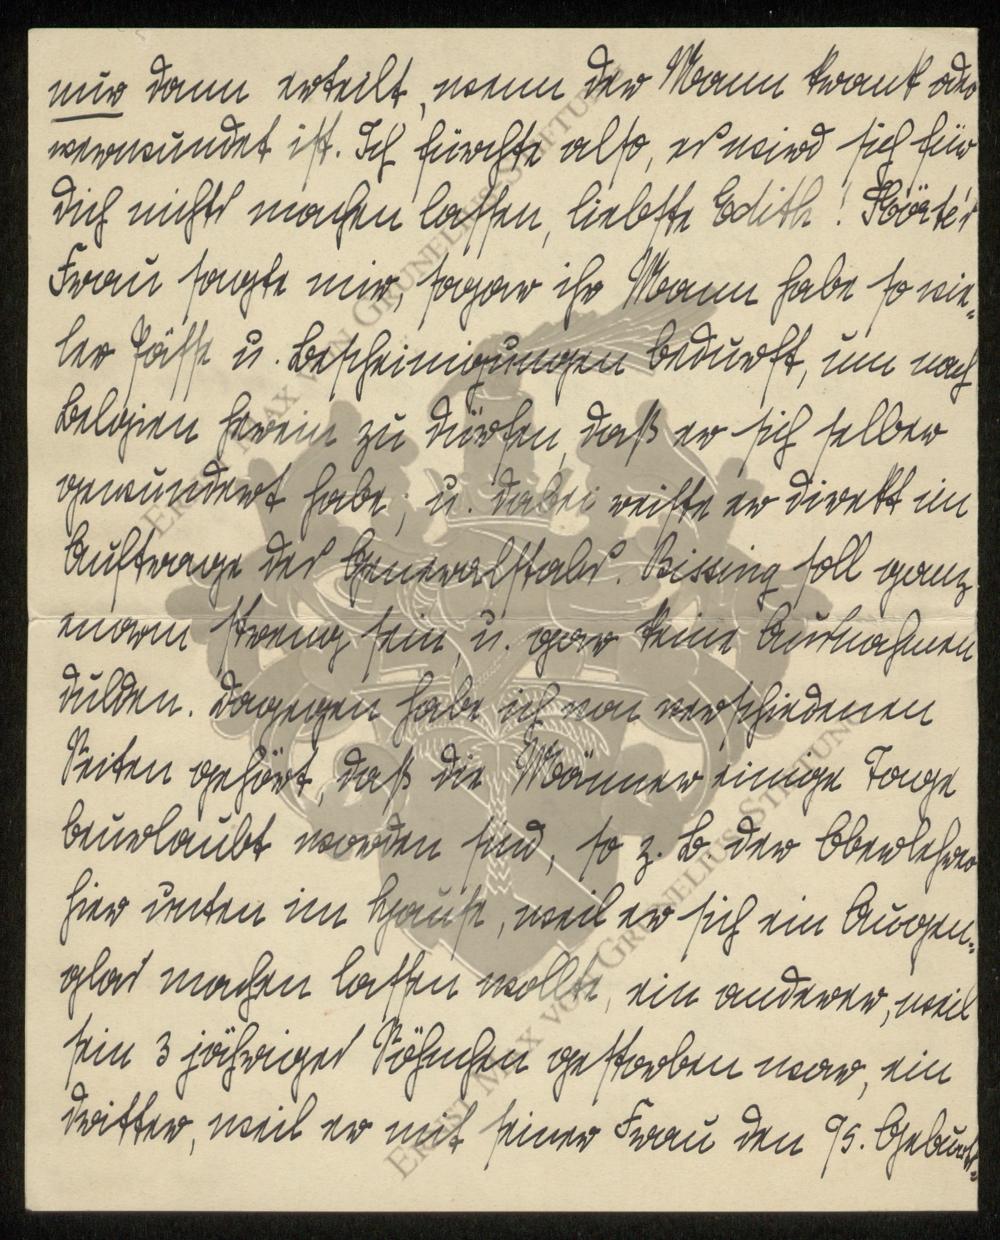 nur dann erteilt, wenn der Mann krank oder
verwundet ist. Ich fürchte also, es wird sich für
Dich nichts machen lassen, liebste Edith! Köster's
Frau sagte mir, sogar ihr Mann habe so vie-
ler Pässe u. Bescheinigungen bedurft, um nach
Belgien herein zu dürfen, daß er sich selber
gewundert habe; u. dabei reiste er direkt im
Auftrage des Generalstabs. Bissing soll ganz
enorm streng sein, u. gar keine Ausnahmen
dulden. Dagegen habe ich von verschiedenen
Seiten gehört, daß die Männer einige Tage
beurlaubt worden sind, so z. B. der Oberlehrer
hier unten im Hause, weil er sich ein Augen-
glas machen lassen wollte, ein anderer, weil
sein 3 jähriges Söhnchen gestorben war, ein
dritter, weil er mit seiner Frau den 95. Geburts-
ERNST MAX VON GRUNELIUS-STIFTUNG
ERNST MAX VON GRUNELIUS-STIFTUNG